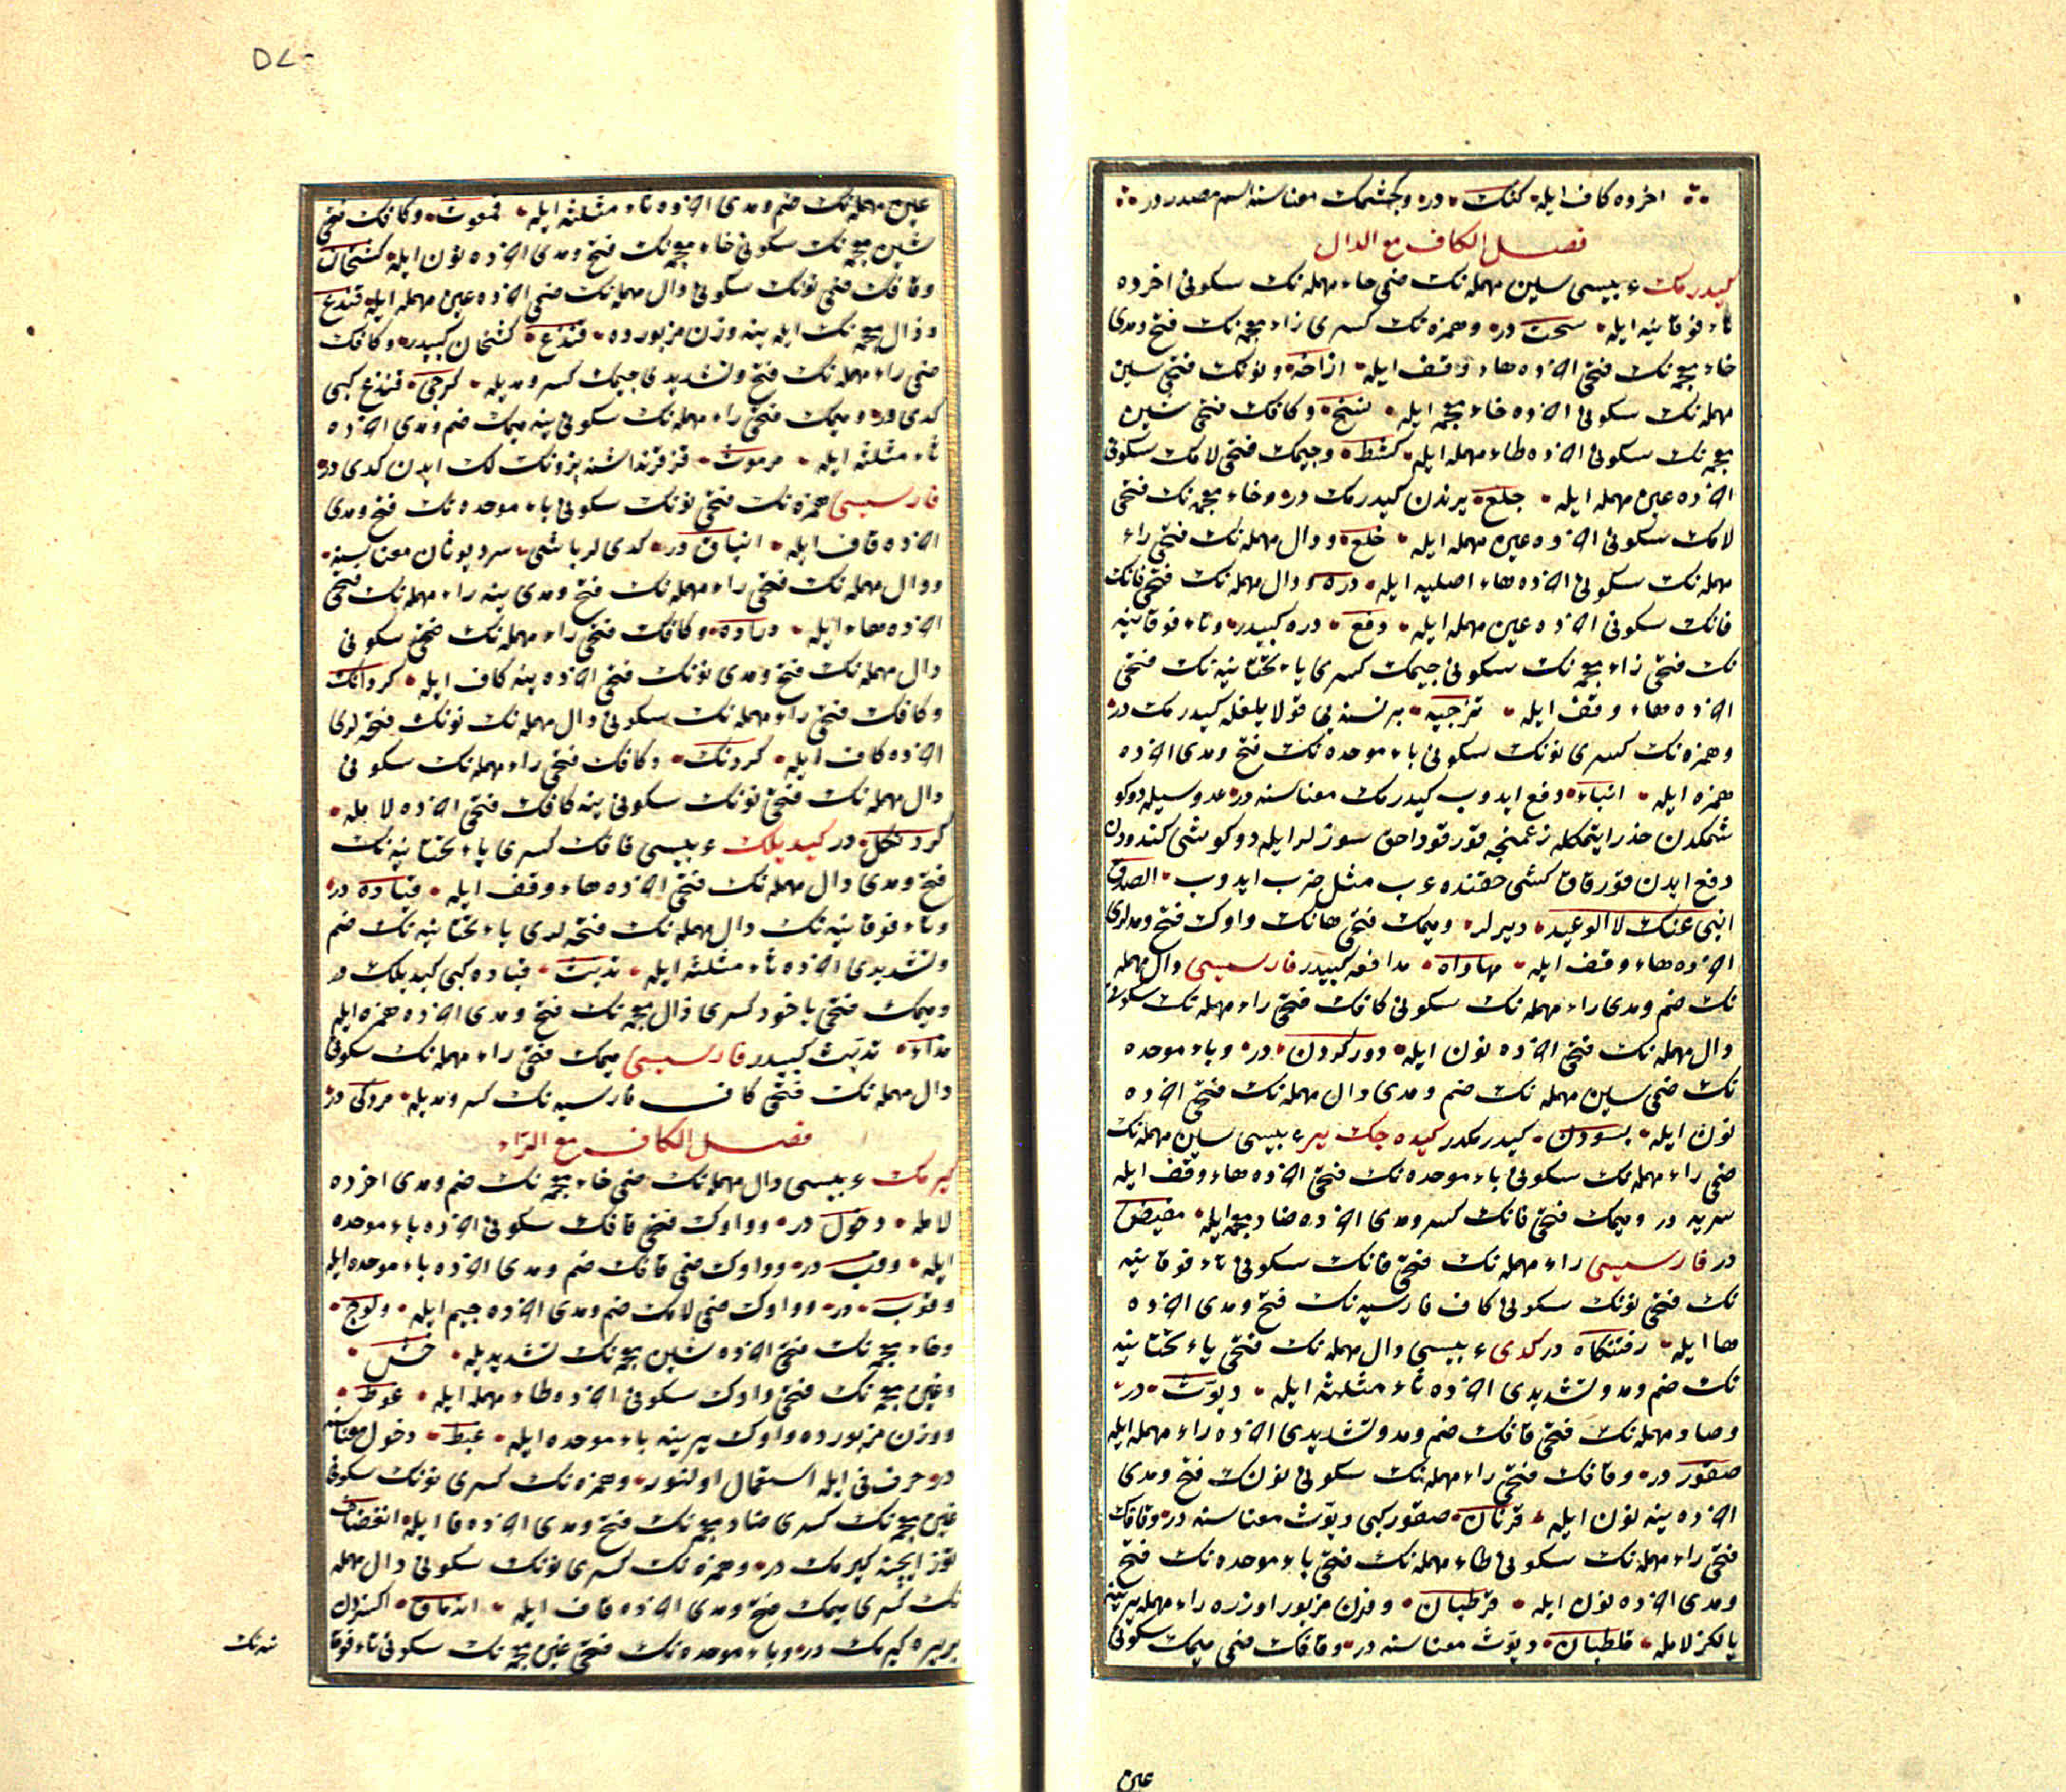 اخرده كاف ايله كنك در وكچشمك معناسنه اسم مصدر در
فصل الكاف مع الدال
كيدرمك عربيسى سين مهمله نك ضمى حاء مهمله نك سكونى اخرده
تاء فوقانيه ايله سحت در وهمزه نك كسرى زاء معجمه نك فتح ومدى
خاء معجمه نك فتحى اخرده هاء وقف ايله ازاخه ونونك فتحى سين
مهمله نك سكونى اخرده خاء معجمه ايله نسخ وكافك فتحى شين
معجمه نك سكونى اخرده طاء مهمله ايله كشط وجيمك فتحى لامك سكونى
اخرده عين مهمله ايله جلع يرندن كيدرمك در وخاء معجمه نك فتحى
لامك سكونى اخرده عين مهمله ايله خلع ودال مهمله نك فتحى راء
مهمله نك سكونى اخرده هاء اصليه ايله دره ودال مهمله نك فتحى فانك
فانك سكونى اخرده عين مهمله ايله دفع دره كبيدر وتاء فوقانيه
نك فتحى زاء معجمه نك سكونى جيمك كسرى ياء تحتانيه نك فتحى
اخرده هاء وقف ايله تزجيه بر نسنه يى قولايلغله كيدرمك در
وهمزه نك كسرى نونك سكونى باء موحده نك فتح ومدى اخرده
همزه ايله انباء دفع ايدوب كيدرمك معناسنه در عدو سيله دوكو
شمكدن حذر ايتمكله زعمنجه قورقوداجق سوزلر ايله دوكوشى كندودن
دفع ايدن قورقاق كشى حقنده عرب مثل ضرب ايدوب الصدق
انبى عنك لا الوعيد ديرلر وميمك فتحى هانك واوك فتح ومدلرى
اخرده هاء وقف ايله مهاواه مدافعه كبيدر فارسيسى دال مهمله
نك ضم ومدى راء مهمله نك سكونى كافك فتحى راء مهمله نك سكونى
دال مهمله نك فتحى اخرده نون ايله دور كردن در وباء موحده
نك ضمى سين مهمله نك ضم ومدى دال مهمله نك فتحى اخرده
نون ايله بسودن كيدرمكدر كيده جك ير عربيسى سين مهمله نك
ضمى راء مهمله نك سكونى باء موحده نك فتحى اخرده هاء وقف ايله
سربه در وميمك فتحى فانك كسر ومدى اخرده ضاد معجمه ايله مفيض
در فارسيسى راء مهمله نك فتحى فانك سكونى تاء فوقانيه
نك فتحى نونك سكونى كاف فارسيه نك فتح ومدى اخرده
ها ايله رفتنكاه در كدى عربيسى دال مهمله نك فتحى ياء تحتانيه
نك ضم ومد وتشديدى اخرده ثاء مثلثه ايله ديوث در
وصاد مهمله نك فتحى قافك ضم ومد وتشديدى اخرده راء مهمله ايله
صقور در وقافك فتحى راء مهمله نك سكونى نونك فتح ومدى
اخرده ينه نون ايله قرنان صقور كبى ديوث معناسنه در وقافك
فتحى راء مهمله نك سكونى طاء مهمله نك فتحى باء موحده نك فتح
ومدى اخرده نون ايله قرطبان ووزن مزبور اوزره راء مهمله يرينه
يالكز لامله قلطبان ديوث معناسنه در وقافك ضمى ميمك سكونى
عين
عين مهمله نك ضم ومدى اخرده ثاء مثلثه ايله قمعوث وكافك فتحى
شين معجمه نك سكونى خاء معجمه نك فتح ومدى اخرده نون ايله كشخان
وقافك ضمى نونك سكونى دال مهمله نك ضمى اخرده عين مهمله ايله قندع
وذال معجمه نك ايله ينه وزن مزبورده قنذع كشخان كبيدر وكافك
ضمى راء مهمله نك فتح وتشديدى جيمك كسر ومديله كرجى قنذع كبى
كدى در وميمك فتحى راء مهمله نك سكونى ينه ميمك ضم ومدى اخرده
ثاء مثلثه ايله مرموث قز قرنداشنه پزونك لك ايدن كدى در
فارسيسى همزه نك فتحى نونك سكونى باء موحده نك فتح ومدى
اخرده قاف ايله انباق در كدى لر باشى سرديوثان معناسنه
ودال مهمله نك فتحى راء مهمله نك فتح ومدى ينه راء مهمله نك فتحى
اخرده هاء ايله دراده وكافك فتحى راء مهمله نك ضمى سكونى
دال مهمله نك فتح ومدى نونك فتحى اخرده ينه كاف ايله كردانك
وكافك فتحى راء مهمله نك سكونى دال مهمله نك نونك فتحه لرى
اخرده كاف ايله كردنك وكافك فتحى راء مهمله نك سكونى
دال مهمله نك فتحى نونك سكونى ينه كافك فتحى اخرده لامله
كردنكل در كيديلك عربيسى قافك كسرى ياء تحتانيه نك
فتح ومدى دال مهمله نك فتحى اخرده هاء وقف ايله قياده در
وتاء فوقانيه نك دال مهمله نك فتحه لرى ياء تحتانيه نك ضم
وتشديدى اخرده ثاء مثلثه ايله تديث قياده كبى كيديلك در
وميمك فتحى ياخود كسرى ذال معجمه نك فتح ومدى اخرده همزه ايله
مذاء تديث كبيدر فارسيسى ميمك فتحى راء مهمله نك سكونى
دال مهمله نك فتحى كاف فارسيه نك كسر ومديله مردكى در
فصل الكاف مع الراء
كيرمك عربيسى دال مهمله نك ضمى خاء معجمه نك ضم ومدى اخرده
لامله دخول در وواوك فتحى قافك سكونى اخرده باء موحده
ايله وقب در وواوك ضمى قافك ضم ومدى اخرده باء موحده ايله
وقوب در وواوك ضمى لامك ضم ومدى اخرده جيم ايله ولوج
وخاء معجمه نك فتحى اخرده شين معجمه نك تشديديله خش
وغين معجمه نك فتحى واوك سكونى اخرده طاء مهمله ايله غوط
ووزن مزبورده واوك يرينه باء موحده ايله غبط دخول معناسنه
در حرف فى ايله استعمال اولنور وهمزه نك كسرى نونك سكونى
غين معجمه نك كسرى ضاد معجمه نك فتح ومدى اخرده فا ايله انغضاف
توز ايچنه كيرمك در وهمزه نك كسرى نونك سكونى دال مهمله
نك كسرى ميمك فتح ومدى اخرده قاف ايله اندماق اكسزدن
بر يره كيرمك در وباء موحده نك فتحى غين معجمه نك سكونى تاء فوقا
نيه نك